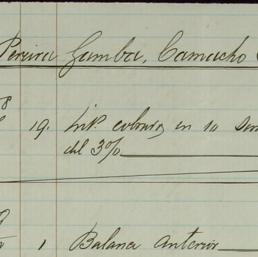 Pereira Gamba, Camacho
8
19. Int. cobrados en 10 sem
del 3%
1 Balance Anterior